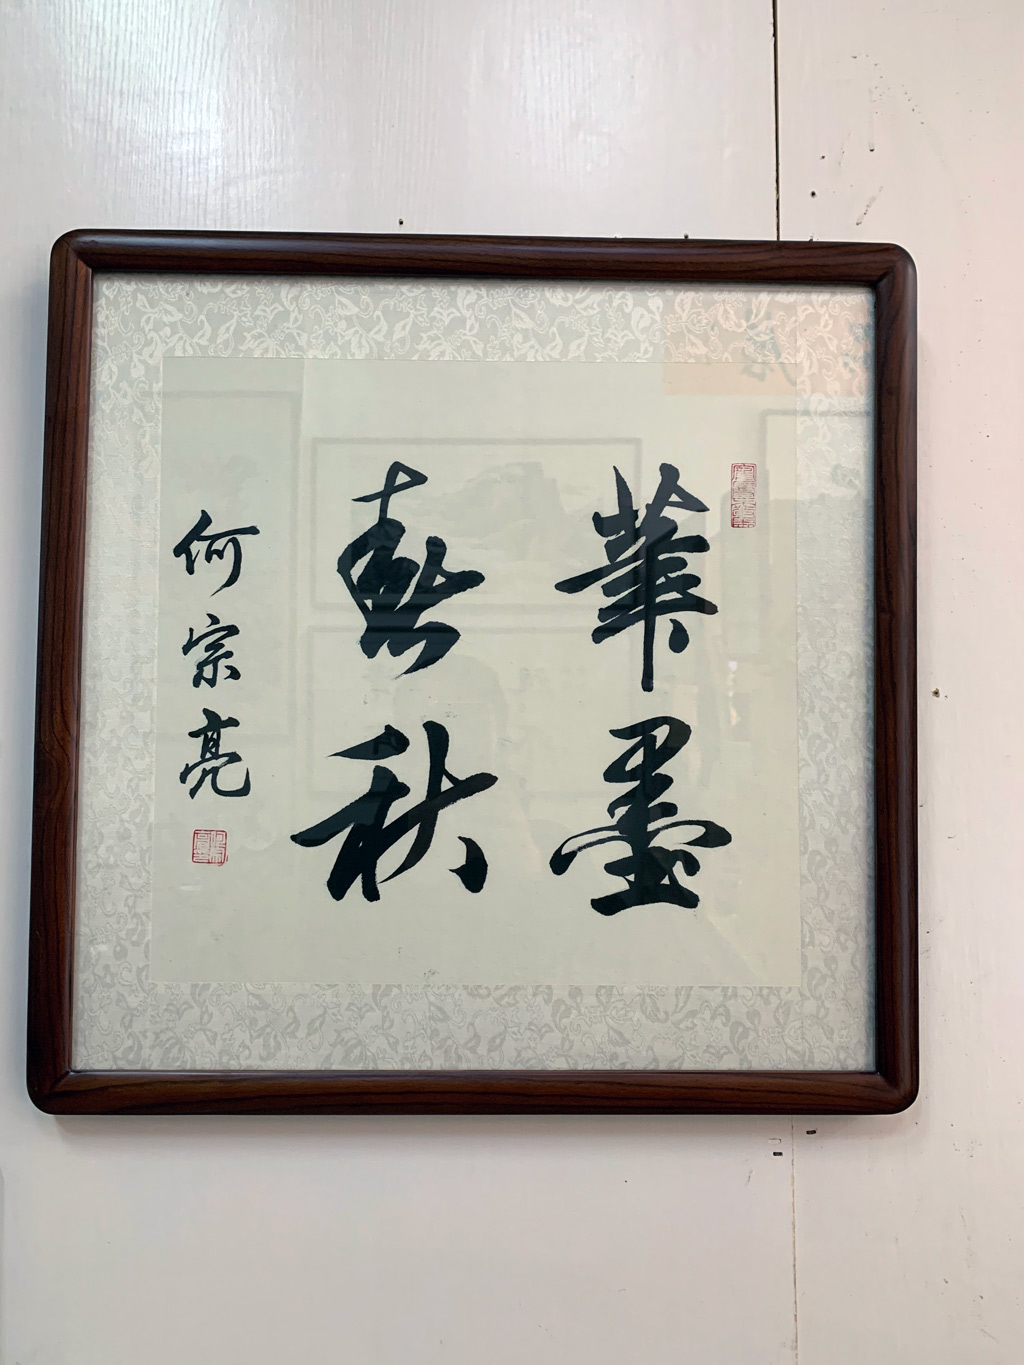 華墨
春秋
何宗亮